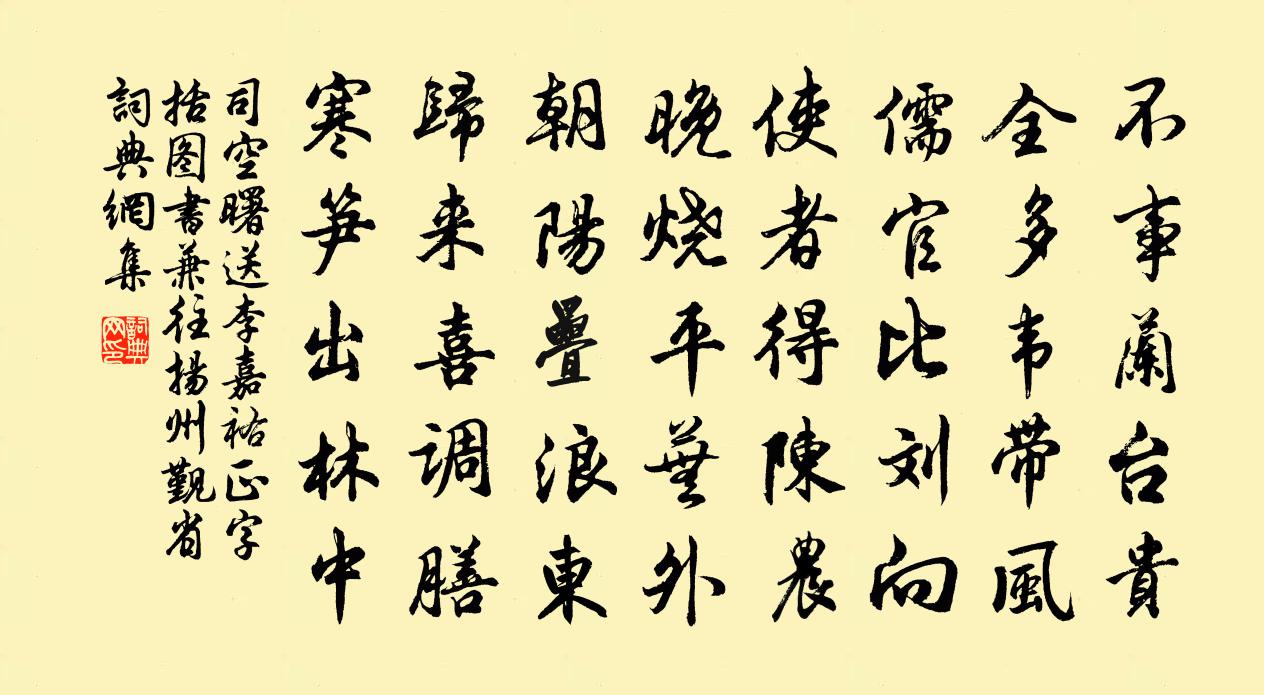 不事蘭台貴
全多韦带風
儒官比刘向
使者得陳農
晚烧平蕪外
朝陽疊浪東
歸来喜调膳
寒笋出林中
司空曙送李嘉祐正字
括图書兼往揚州覲省
詞典網集
詞典网印